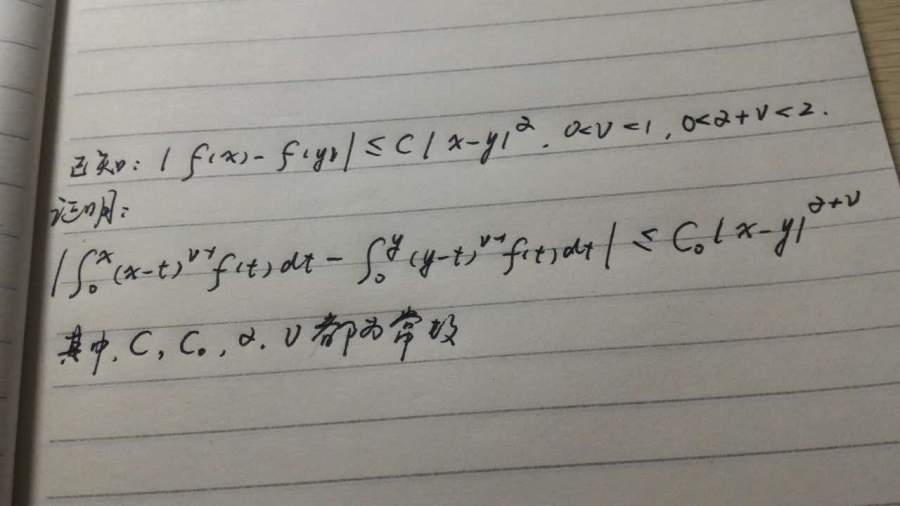 已知: | f(x) - f(y) | ≤ C | x-y |^α . 0<ν<1 , 0<α+ν<2 .
证明:
| ∫₀ˣ (x-t)^{ν-1} f(t) dt - ∫₀ʸ (y-t)^{ν-1} f(t) dt | ≤ C₀ | x-y |^{α+ν}
其中, C, C₀, α, ν 都为常数